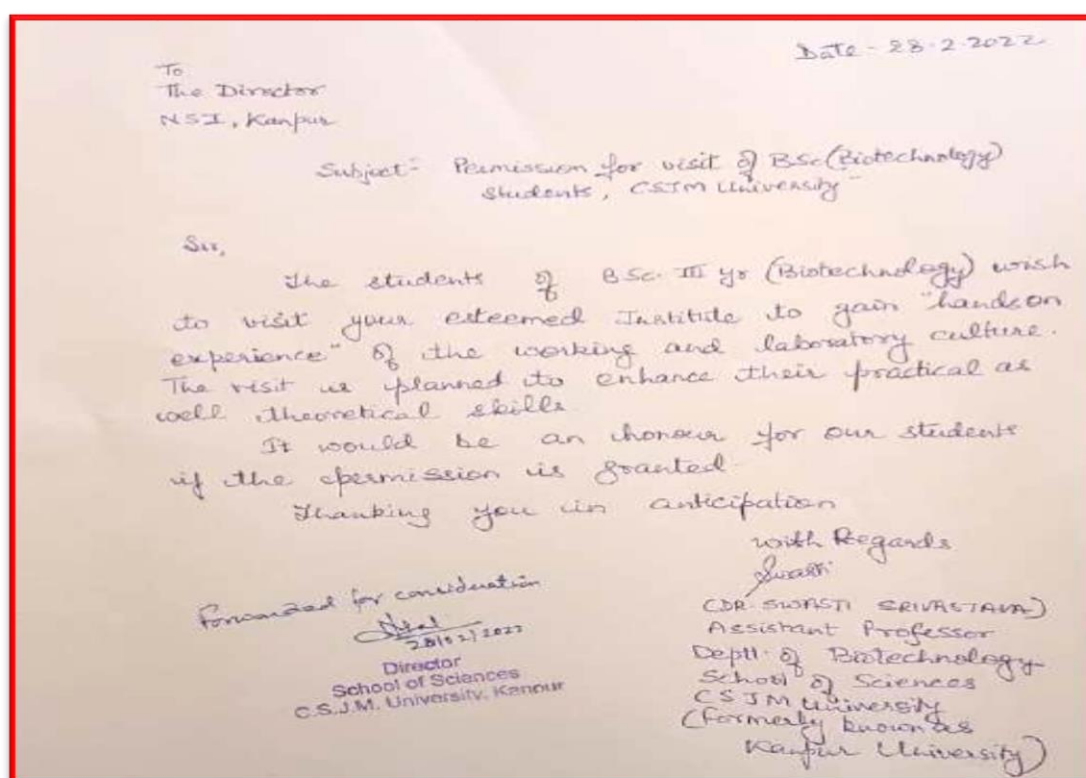 Date - 28.2.2022
To
The Director
NSI, Kanpur
Subject- Permission for visit of BSc (Biotechnology)
Students, CSJM University"
Sir,
The students of BSc. III yr (Biotechnology) wish
to visit your esteemed Institute to gain "handson
experience" of the working and laboratory culture.
The visit is planned to enhance their practical as
well theoretical skills.
It would be an honour for our students
if the permission is granted.
Thanking you in anticipation
with Regards
Swasti
(DR. SWASTI SRIVASTAVA)
Assistant Professor
Deptt. of Biotechnology
School of Sciences
CSJM University
(formerly known as
Kanpur University)
Forwarded for consideration
28/02/2022
Director
School of Sciences
C.S.J.M. University, Kanpur